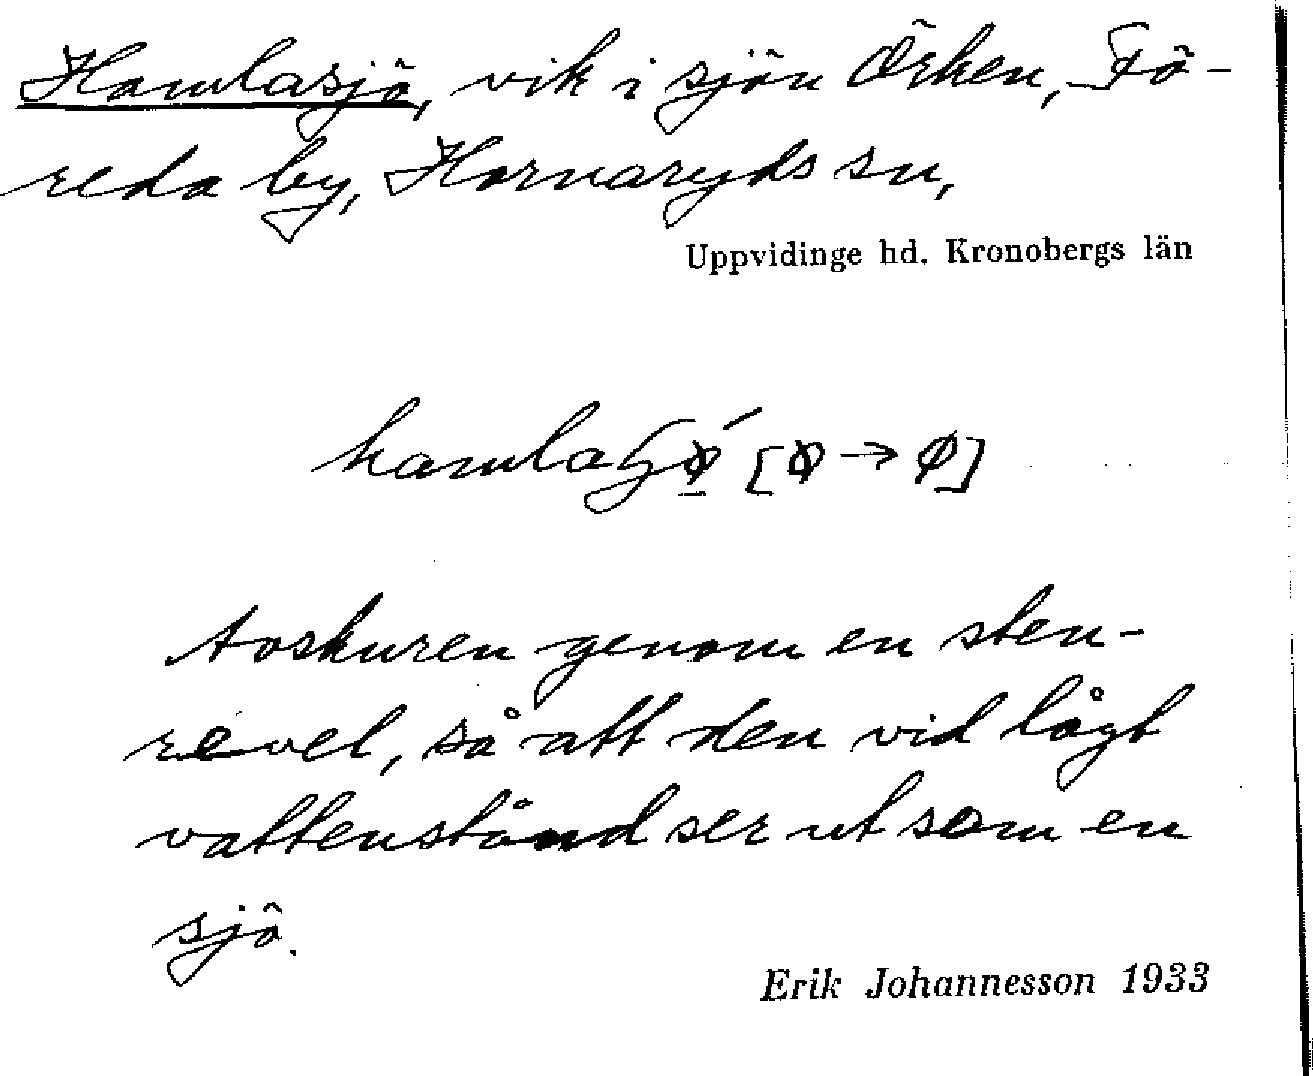 Hamlasjö, vik i sjön Örken, Fö-
reda by, Hornaryds sn,
Uppvidinge hd. Kronobergs län
Avskuren genom en sten-
revel, så att den vid lågt
vattenstånd ser ut som en
sjö.
Erik Johannesson 1933